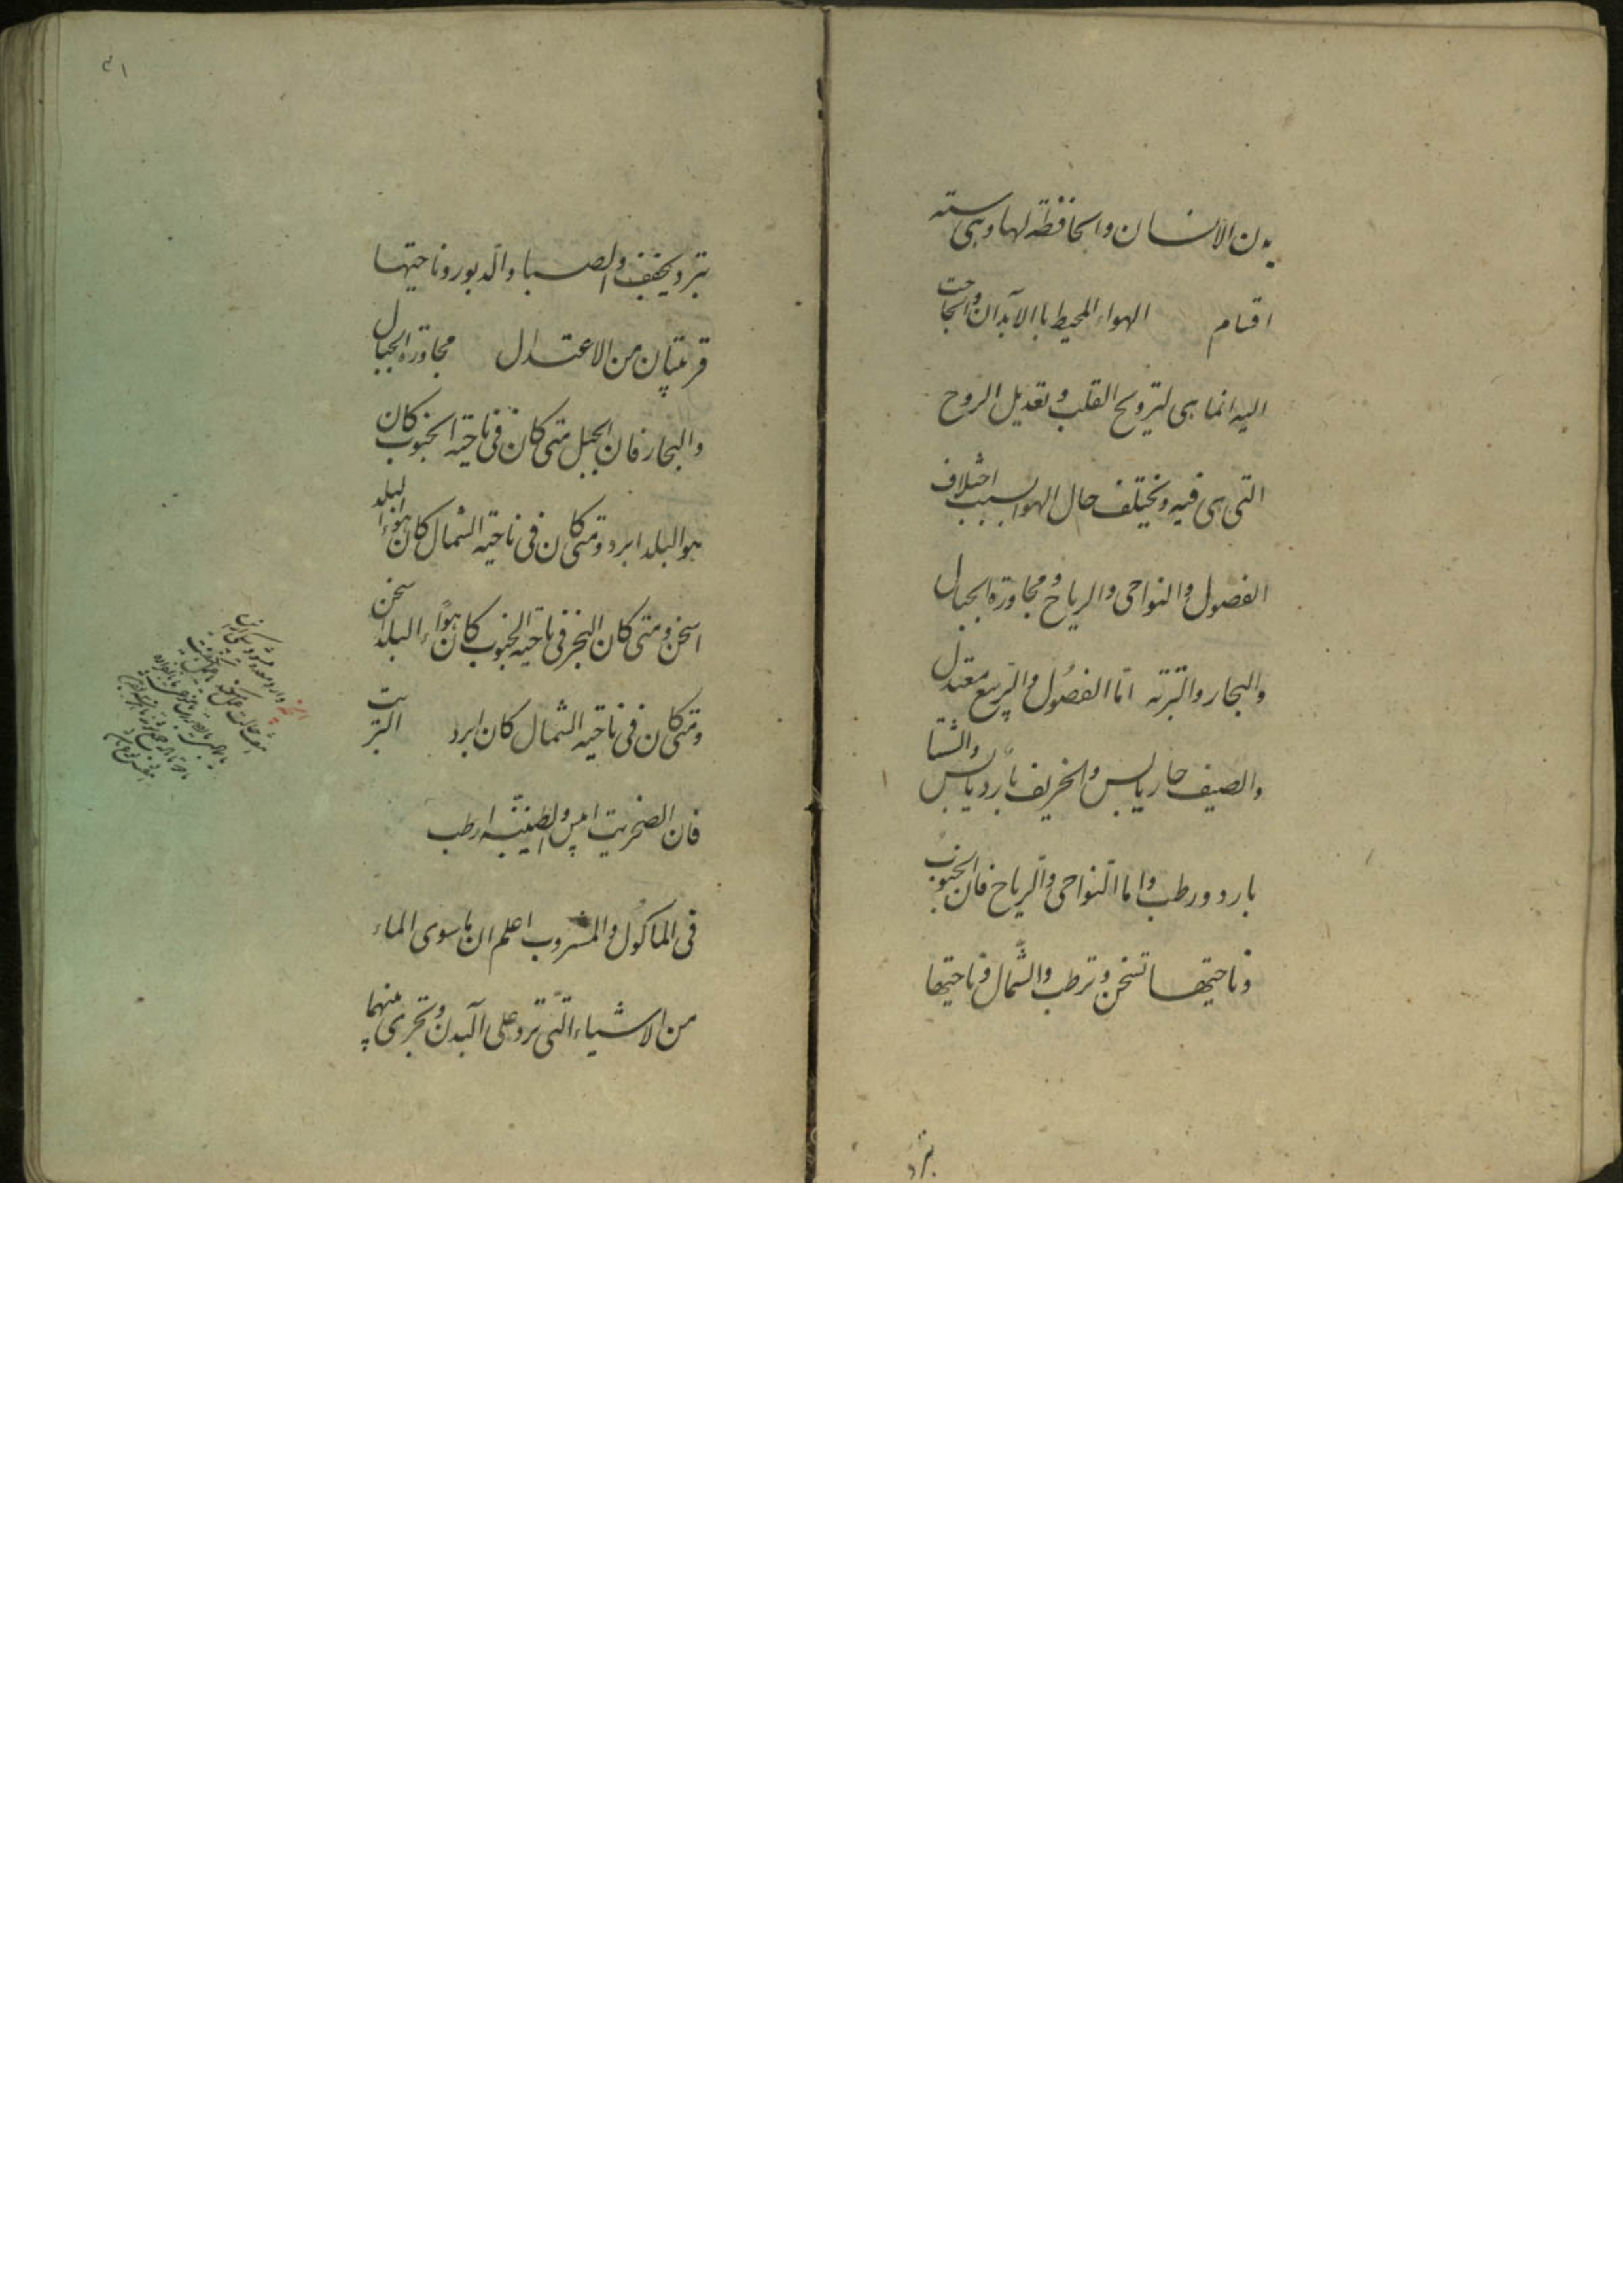 بدن الانسان والحافظة لها وهى ستة
اقسام الهواء المحيط باالابدان والحاجت
اليه انما هى لترويح القلب و تعديل الروح
التى هى فيه و يختلف حال الهوا بسبب اختلاف
الفصول والنواحى والرياح و مجاورة الجبال
والبحار والتربته اما الفصول والربيع معتدل
والصيف حار يابس والخريف بارد يابس والشتا
بارد ورطب واما النواحى والرياح فان الجنوب
و ناحيتها تسخن و ترطب والشمال و ناحيتها
تبرد
۴۱
تبرد و يجفف والصبا والدبور و ناحيتها
قريبتان من الاعتدال مجاورة الجبال
والبحار فان الجبل متى كان فى ناحية الجنوب كان
هوا البلد ابرد و متى كان فى ناحية الشمال كان هواء البلد
اسخن و متى كان البحر فى ناحية الجنوب كان هواء البلد اسخن
و متى كان فى ناحية الشمال كان ابرد التربت
فان الصخريت ايبس والطينية ارطب
فى الماكول والمشروب اعلم ان ما سوى الماء
من الاشياء التى ترد على البدن و تجرى منهما